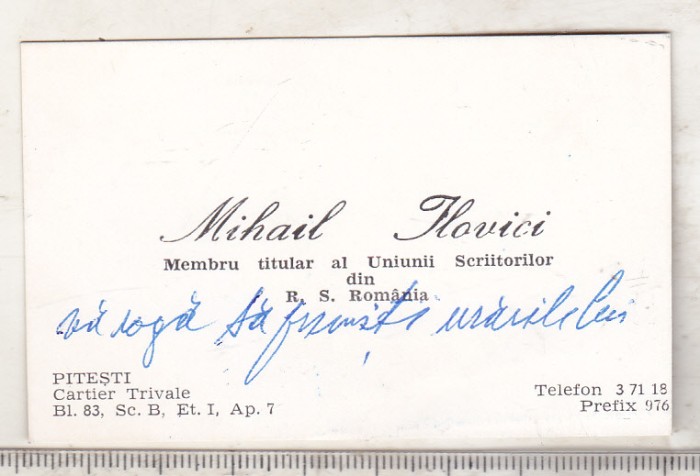 Mihail Ilovici
Membru titular al Uniunii Scriitorilor
din
R. S. România
vă rogă să primiți urările lui
PITEȘTI
Cartier Trivale
Bl. 83, Sc. B, Et. I, Ap. 7
Telefon 3 71 18
Prefix 976